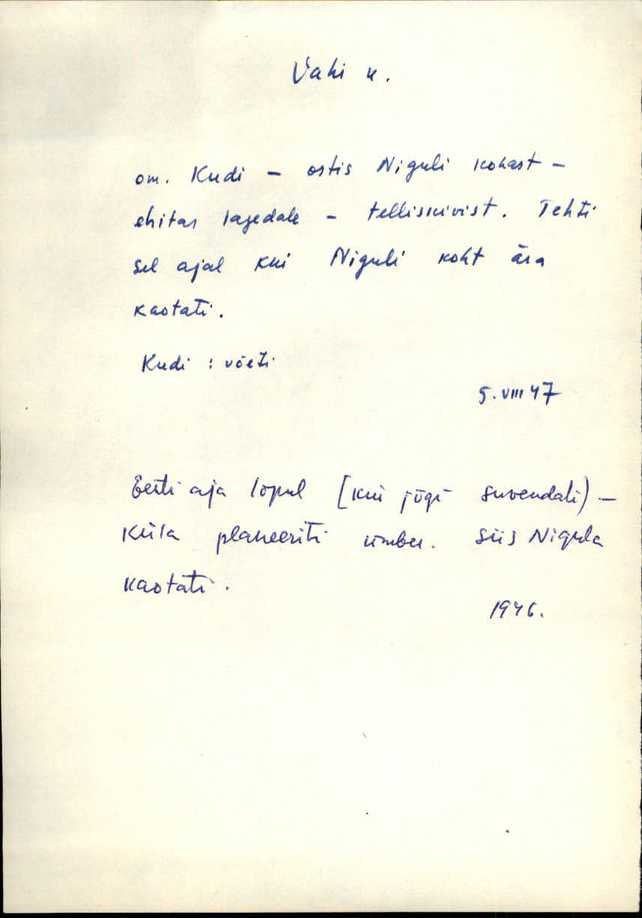 Vahi k.
om. Kudi - ostis Niguli kohast -
ehitas lagedale - telliskivist. Tehti
sel ajal kui Niguli koht ära
kaotati.
Kudi : võeti
5. VIII 47
Eesti aja lopul [kui jõgi suvendati) -
küla planeeriti ümber. Siis Nigula
kaotati.
1946.